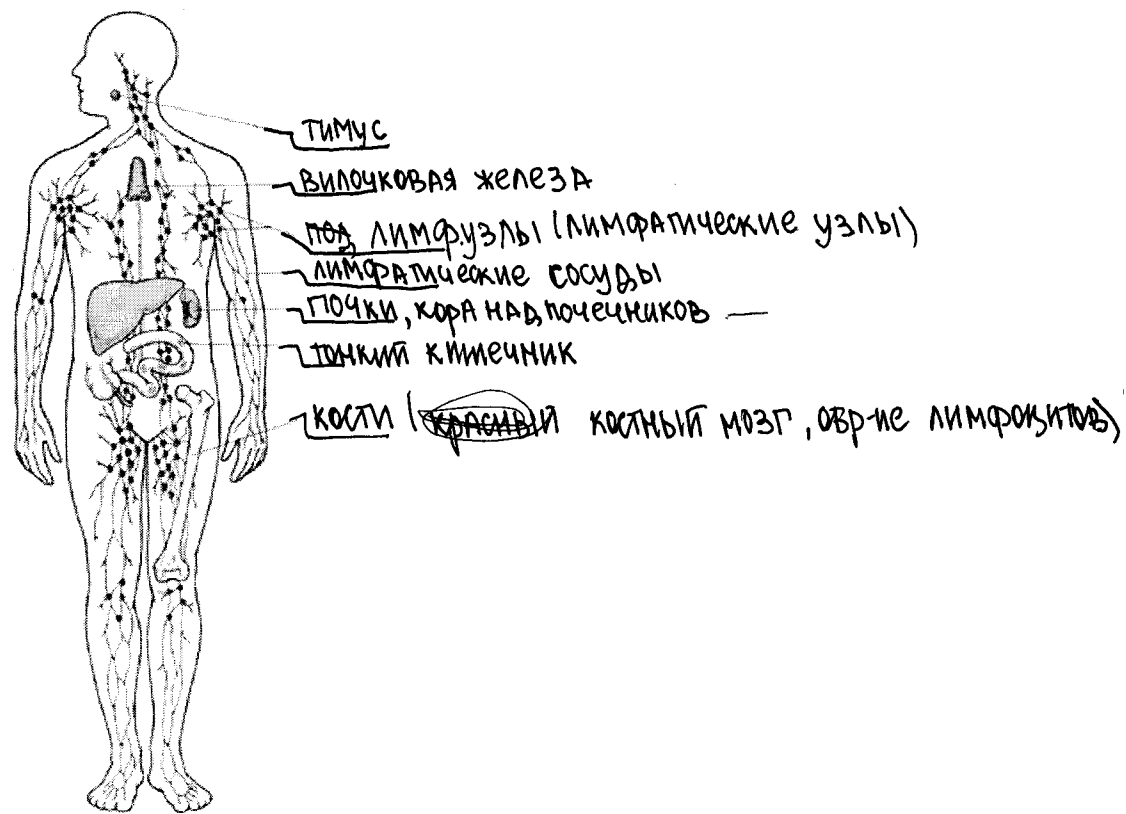 ТИМУС
ВИЛОЧКОВАЯ ЖЕЛЕЗА
ПОД ЛИМФ.УЗЛЫ (ЛИМФАТИЧЕСКИЕ УЗЛЫ)
ЛИМФАТИЧЕСКИЕ СОСУДЫ
ПОЧКИ, КОРА НАДПОЧЕЧНИКОВ —
ТОНКИЙ КИШЕЧНИК
КОСТИ (КРАСНЫЙ КОСТНЫЙ МОЗГ, ОБР-ИЕ ЛИМФОЦИТОВ)